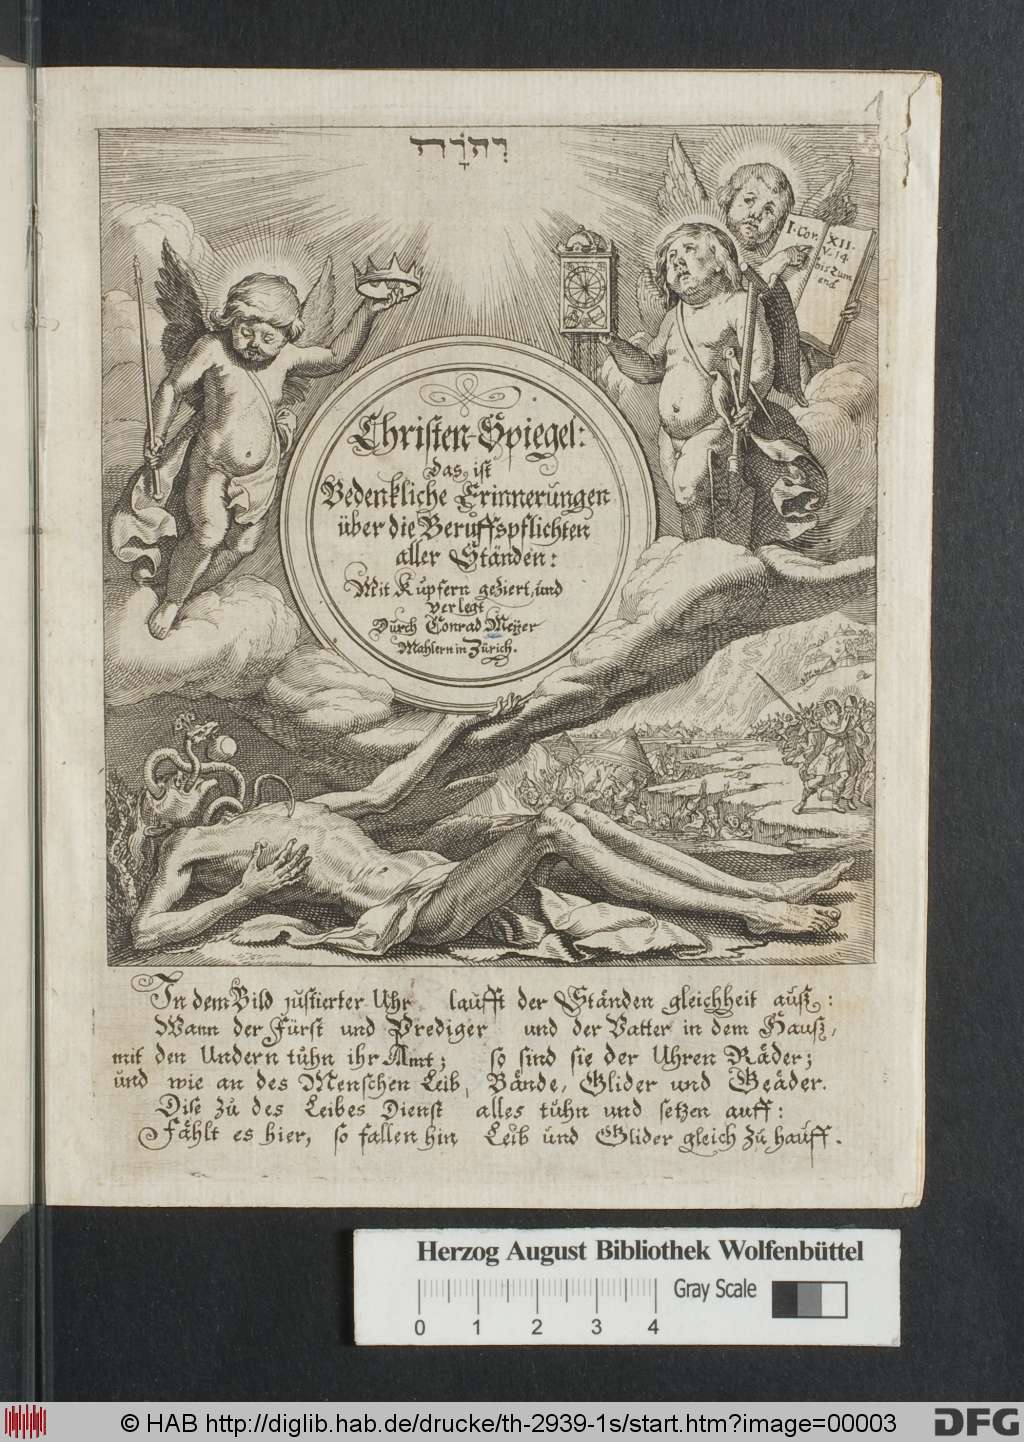 1
יְהוָֹה
I. Cor. XII.
V. 14.
bis zum
end.
Christen-Spiegel:
Das ist
Bedenkliche Erinnerungen
über die Beruffspflichten
aller Ständen:
Mit Kupfern geziert, und
verlegt
Durch Conrad Meÿer
Mahlern in Zürich.
In dem Bild justierter Uhr laufft der Ständen gleichheit auß:
Wann der Fürst und Prediger und der Vatter in dem Hauß,
mit den Undern tuhn ihr Amt; so sind sie der Uhren Räder;
und wie an des Menschen Leib, Bände, Glider und Geäder.
Dise zu des Leibes Dienst alles tuhn und setzen auff:
Fählt es hier, so fallen hin Leib und Glider gleich zu hauff.
Herzog August Bibliothek Wolfenbüttel
Gray Scale
0 1 2 3 4
© HAB http://diglib.hab.de/drucke/th-2939-1s/start.htm?image=00003
DFG